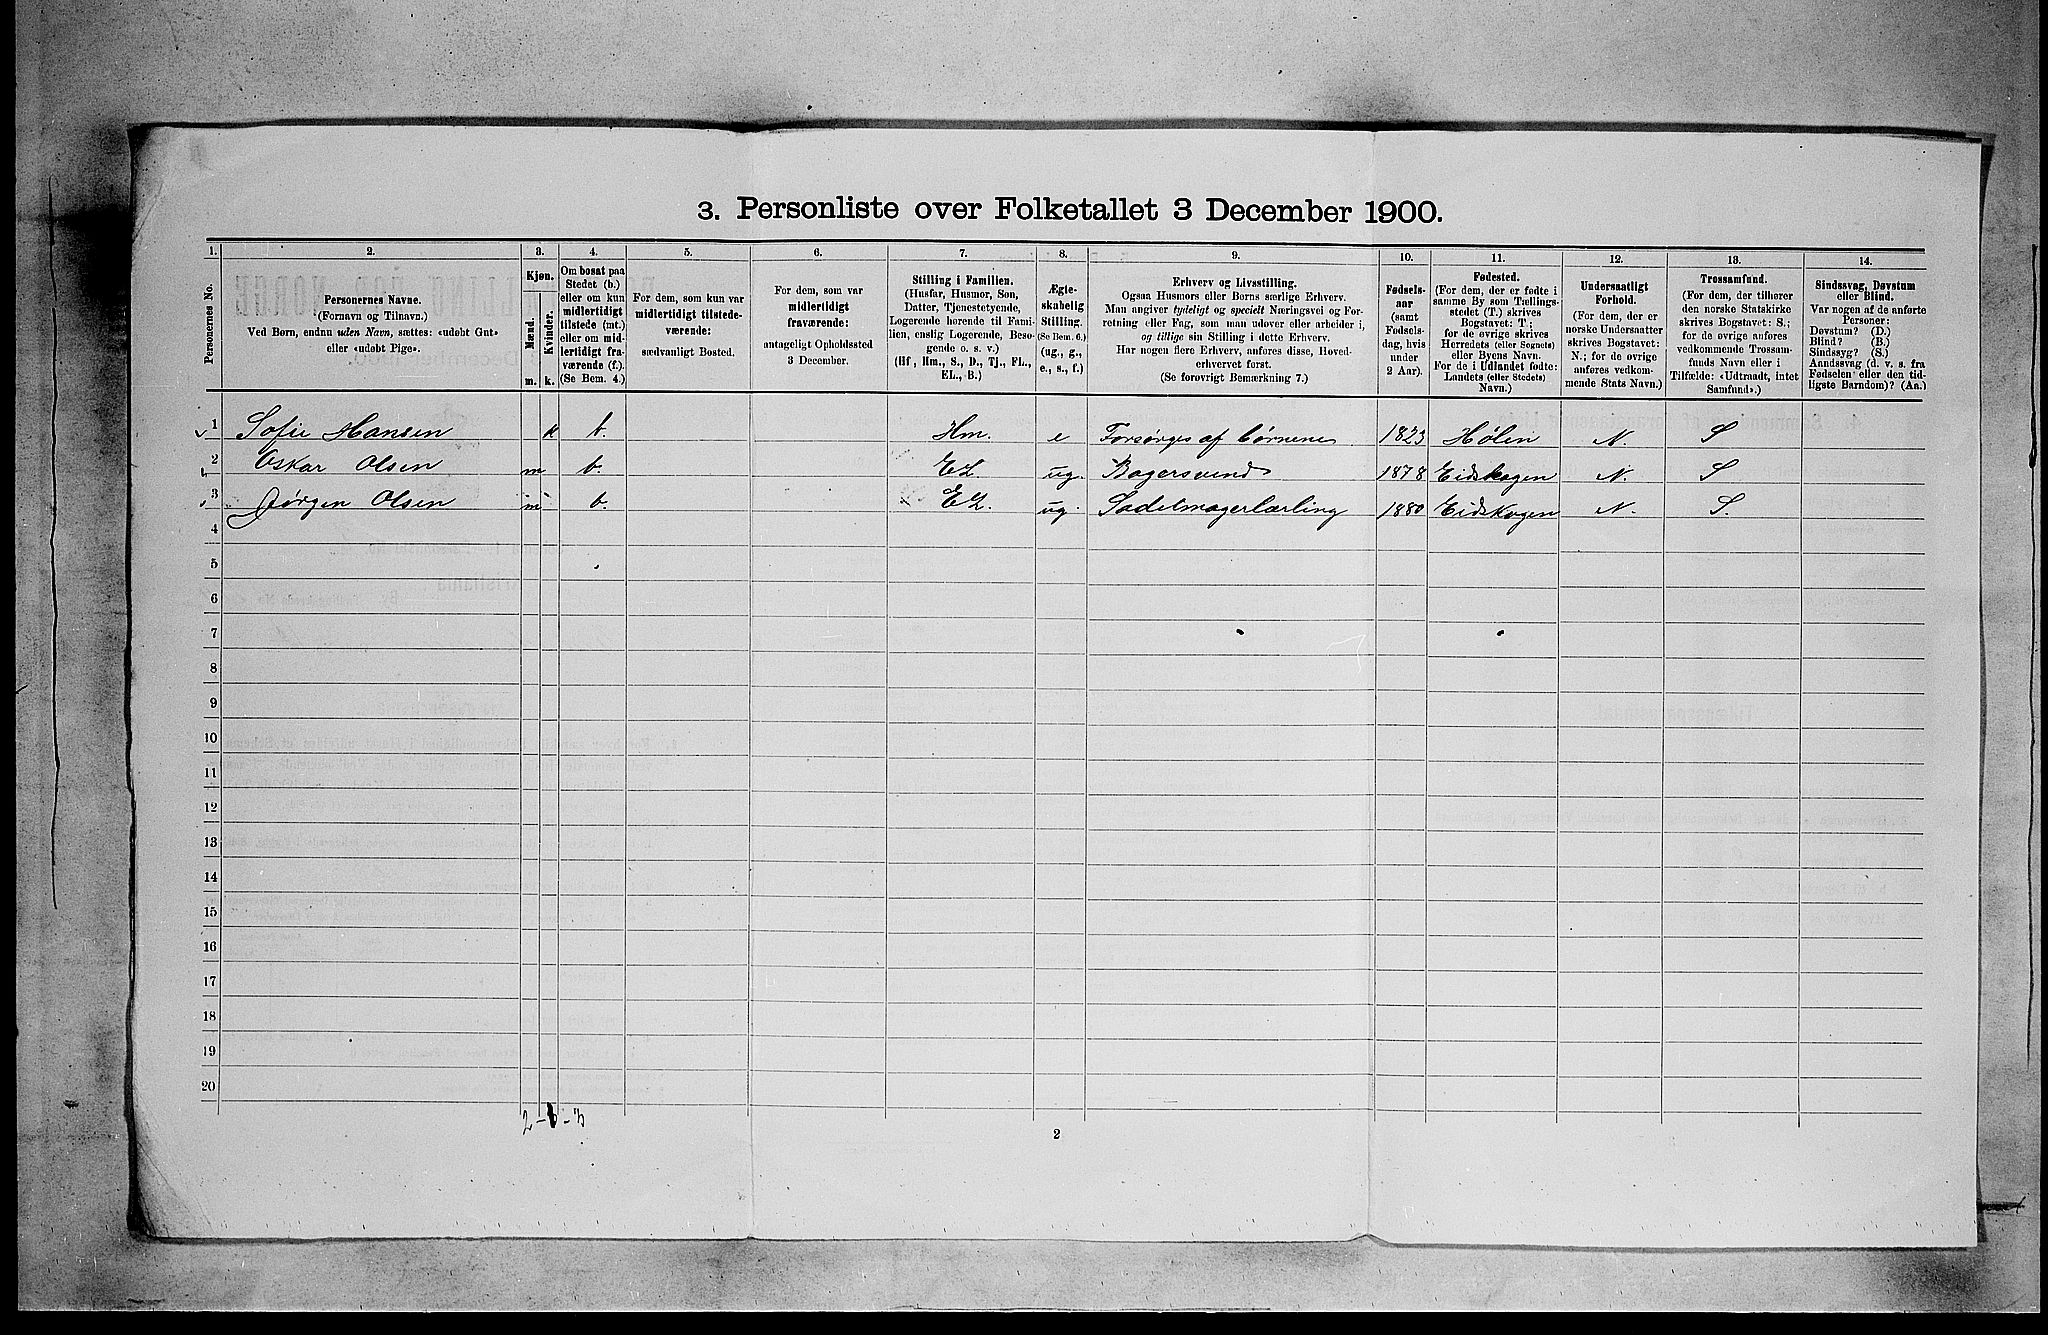 3. Personliste over Folketallet 3 December 1900.
1. 2. 3. 4. 5. 6. 7. 8. 9. 10. 11. 12. 13. 14.
Personernes No.
Personernes Navne.
(Fornavn og Tilnavn.)
Ved Børn, endnu uden Navn, sættes: «udøbt Gut»
eller «udøbt Pige».
Kjøn.
Mænd.
Kvinder.
m. k.
Om bosat paa
Stedet (b.)
eller om kun
midlertidigt
tilstede (mt.)
eller om mid-
lertidigt fra-
værende (f.).
(Se Bem. 4.)
For dem, som kun var
midlertidigt tilstede-
værende:
sædvanligt Bosted.
For dem, som var
midlertidigt
fraværende:
antageligt Opholdssted
3 December.
Stilling i Familien.
(Husfar, Husmor, Søn,
Datter, Tjenestetyende,
Logerende hørende til Fami-
lien, enslig Logerende, Besø-
gende o. s. v.)
(Hf, Hm., S., D., Tj., FL.,
EL., B.)
Ægte-
skabelig
Stilling.
(Se Bem. 6.)
(ug., g.,
e., s., f.)
Erhverv og Livsstilling.
Ogsaa Husmors eller Børns særlige Erhverv.
Man angiver tydeligt og specielt Næringsvei og For-
retning eller Fag, som man udøver eller arbeider i,
og tillige sin Stilling i dette Erhverv.
Har nogen flere Erhverv, anføres disse, Hoved-
erhvervet først.
(Se forøvrigt Bemærkning 7.)
Fødsels-
aar
(samt
Fødsels-
dag, hvis
under
2 Aar).
Fødested.
(For dem, der er fødte i
samme By som Tællings-
stedet (T.) skrives
Bogstavet: T.;
for de øvrige skrives
Herredets (eller Sognets)
eller Byens Navn.
For de i Udlandet fødte:
Landets (eller Stedets)
Navn.)
Undersaatligt
Forhold.
(For dem, der er
norske Undersaatter
skrives Bogstavet:
N.; for de øvrige
anføres vedkom-
mende Stats Navn.)
Trossamfund.
(For dem, der tilhører
den norske Statskirke
skrives Bogstavet: S.;
for de øvrige anføres
vedkommende Trossam-
funds Navn eller i
Tilfælde: «Udtraadt, intet
Samfund».)
Sindssvag, Døvstum
eller Blind.
Var nogen af de anførte
Personer:
Døvstum? (D.)
Blind? (B.)
Sindssyg? (S.)
Aandssvag (d. v. s. fra
Fødselen eller den tid-
ligste Barndom)? (Aa.)
1 Sofie Hansen k b. Hm. e Forsørges af børnene 1823 Hølen N. S
2 Oskar Olsen m b. EL ug. Bagersvend 1878 Eidskogen N. S
3 Jørgen Olsen m b. EL. ug. Sadelmagerlærling 1880 Eidskogen N. S.
4
5
6
7
8
9
10
11
12
13
14
15
16
17
18
19
20
2